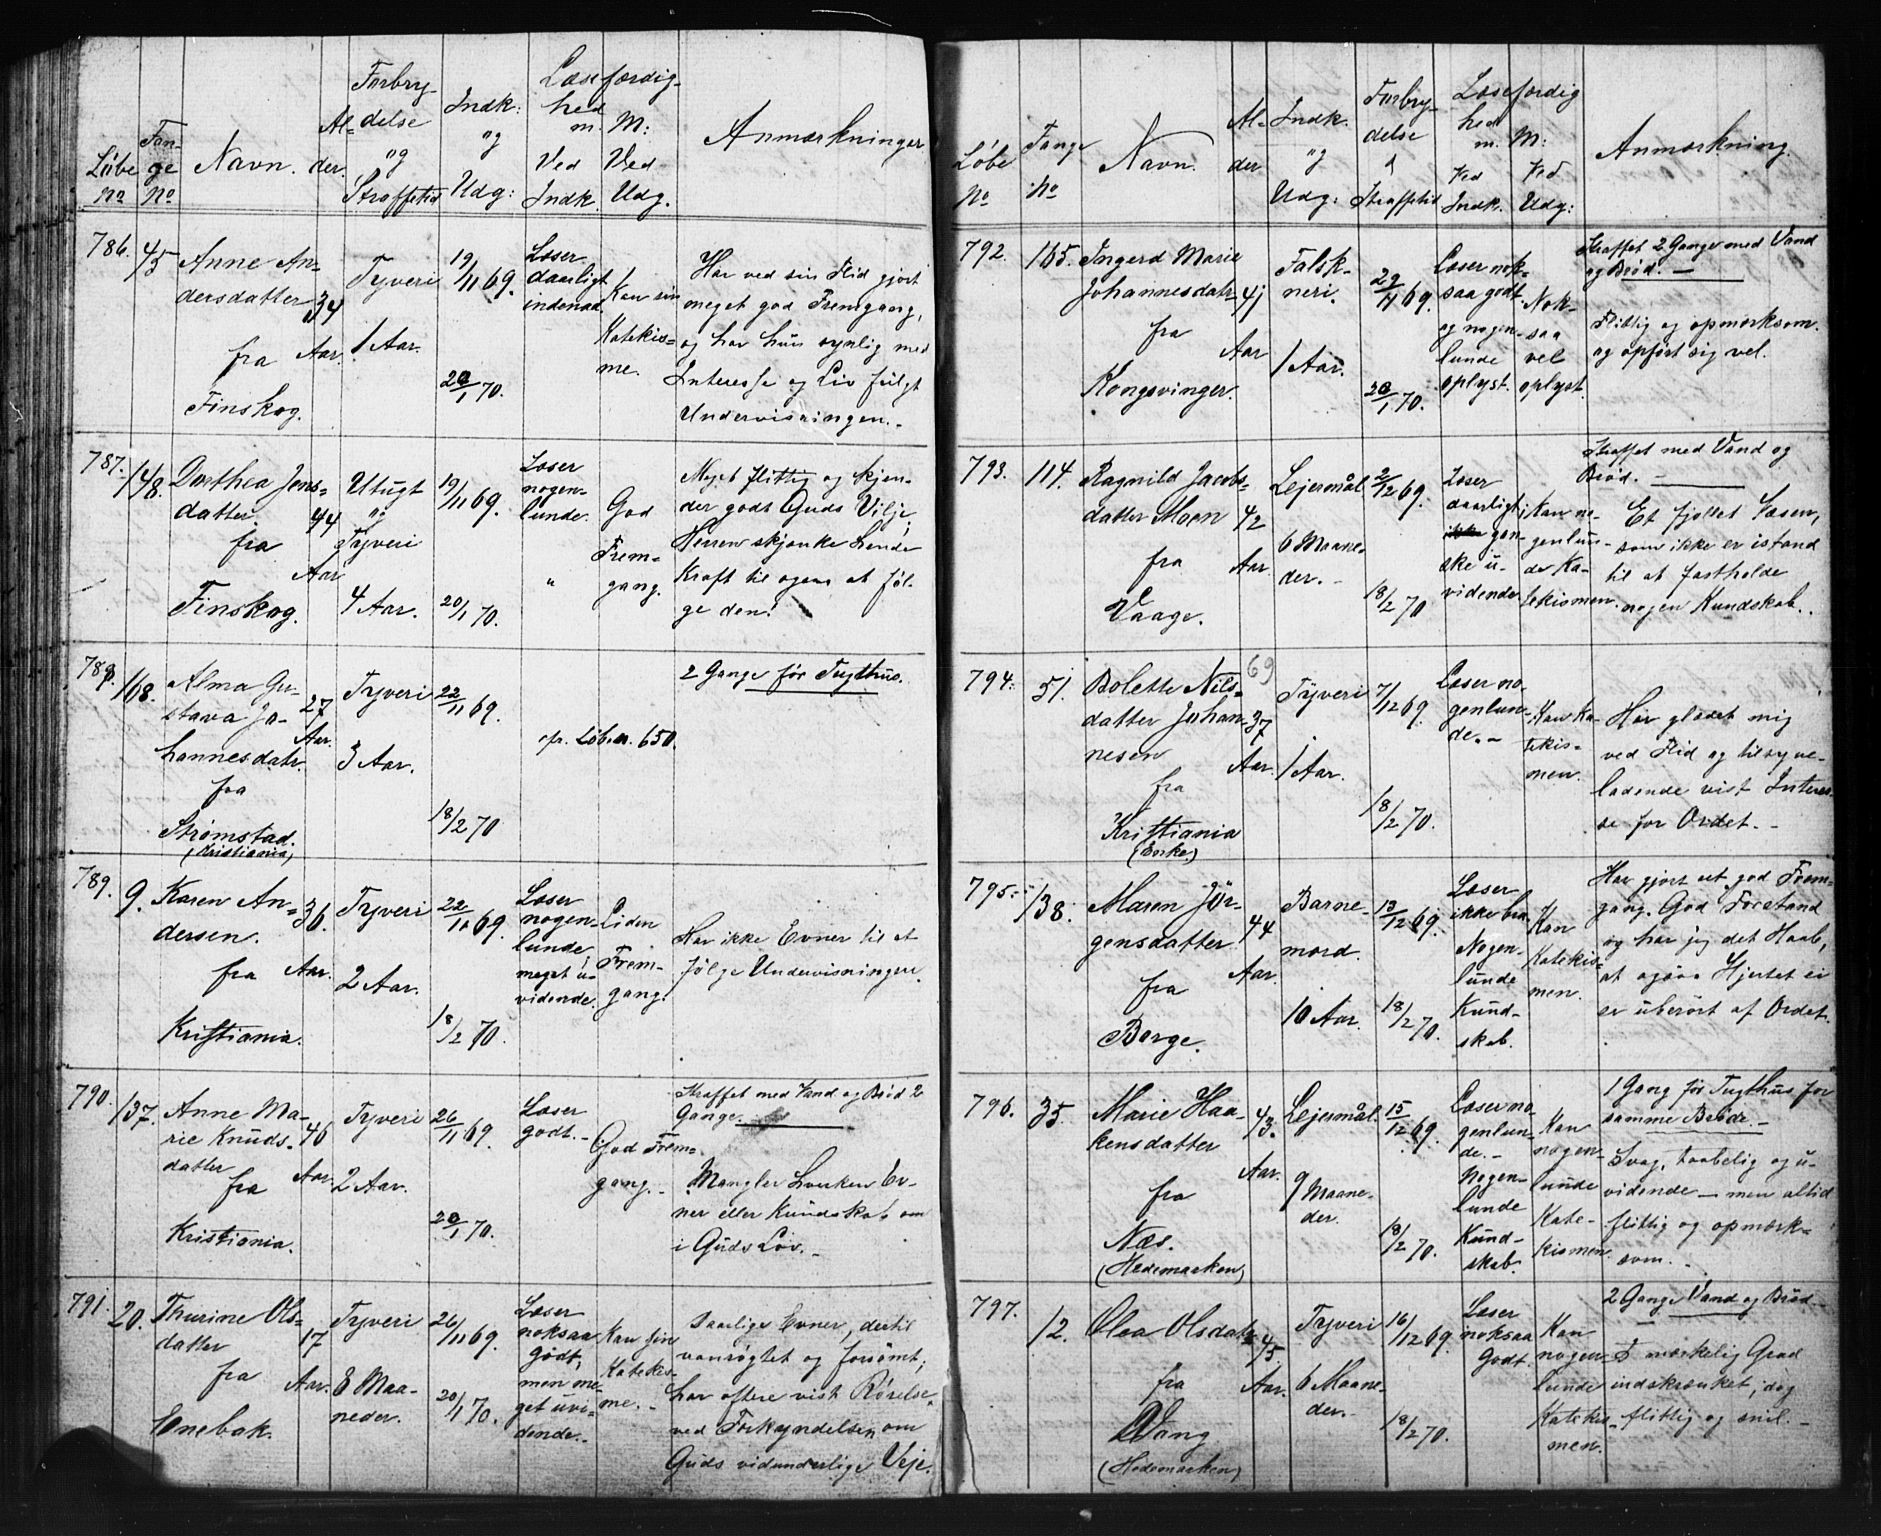 Løbe No
Fange No
Navn.
Alder.
Forbrydelse og Straffetid
Indk: og Udg:
Læsefærdighed m. M:
Ved Indk.
Ved Udg.
Anmærkninger
786.
45
Anne An-
dersdatter
fra
Finskog.
34
Aar.
Tyveri
1 Aar.
19/11 69.
20/1 70.
Læser
daarligt
indenad.
Kan sin
Katekis=
me.
Har ved sin Flid gjort
meget god Fremgang,
og har hun synlig med
Interesse og Liv fulgt
Undervisningen.-
787.
148.
Dorthea Jens=
datter.
fra
Finskog.
44
Aar
Utugt
og
Tyveri
4 Aar.
19/11 69.
20/1 70.
Læser
nogen=
lunde.
"
God
Frem=
gang.
Meget flittig og kjen-
der godt Guds Vilje;
Herren skjænke hende
Kraft til ogsaa at føl-
ge den!
788.
168.
Alma Gu-
stava Jo-
hannesdatr.
fra
Strømstad.
(Kristiania)
27
Aar.
Tyveri
3 Aar.
22/11 69.
18/2 70
cfr. Løb.n. 650.
2 Gange før Tugthus.
789.
9.
Karen An=
dersen.
fra
Kristiania.
36.
Aar.
Tyveri
2 Aar.
22/11 69.
18/2 70.
Læser
nogen-
lunde,
meget u-
vidende.
Liden
Frem-
gang.
Har ikke Evner til at
følge Undervisningen.
790.
137.
Anne Ma-
rie Knuds-
datter
fra
Kristiania.
46
Aar.
Tyveri
2 Aar.
26/11 69.
20/1 70.
Læser
godt.-
God Frem=
gang.-
Straffet med Vand og Brød 2
Gange.
Mangler hverken Ev-
ner eller Kundskab om
i Guds Lov.-
791.
20.
Thurine Ols-
datter
fra
Enebak.
17
Aar.
Tyveri
8 Maa-
neder.
26/11 69.
20/1 70.
Læser
noksaa
godt,
men me-
get uvi-
dende.-
Kan sin
Katekis-
me.-
Daarlige Evner, dertil
vanrøgtet og forsømt;
har oftere vist Rørelse
ved Forkyndelsen om
Guds vidunderlige Veje.
Løbe No
Fange No
Navn.
Alder
Indk. og Udg:
Forbrydelse & Straffetid
Læsefærdighed m. M:
Ved Indk.
Ved Udg:
Anmærkning.
792.
165.
Ingerd Marie
Johannesdatr
fra
Kongsvinger.
41
Aar
Falsk-
neri.
1 Aar.
29/11 69.
20/1 70.
Læser nok-
saa godt
og nogen-
lunde
oplyst.
Nok-
saa
vel
oplyst.
Straffet 2 Gange med Vand
og Brød.-
Flittig og opmærksom.
og opført sig vel.
793.
114.
Ragnild Jacobs-
datter Moen
fra
Vaage.
42
Aar.
Lejermål
6 Maane-
der.-
2/12 69.
18/2 70
Læser
daarligt;
gan-
ske u-
vidende.
Kan no-
genlun-
de Ka-
tekismen.
Straffet med Vand og
Brød.-
Et fjollet Væsen,
som ikke er istand
til at fastholde
nogen Kundskab.
794.
51.
69
Bolette Nils-
datter Johan-
nesen
fra
Kristiania
(Enke)
37
Aar.
Tyveri
1 Aar.
7/12 69.
18/2 70.
Læser no-
genlun-
de.-
Kan Ka-
tekis-
men.
Har glædet mig
ved Flid og tilsyne-
ladende vist Interes-
se for Ordet.-
795.
138.
Maren Jör-
gensdatter
fra
Borge.
44
Aar.
Barne-
mord.
10 Aar.
13/12 69.
18/2 70.
Læser
ikke bra.
Nogen-
lunde
Kund-
skab.
Kan
Katekis-
men.
Har gjort et god Frem=
gang. God Forstand
og har jeg det Haab,
at ogsaa Hjertet ei
er uberört af Ordet.
796.
35.
Marie Haa-
kensdatter
fra
Næs.
(Hedemarken)
43.
Aar.
Lejermål.
9 Maane-
der.
15/12 69.
18/2 70.
Læser no-
genlun-
de.-
Nogen-
lunde
Kund-
skab.
Kan
nogen-
lunde
Kate-
kismen.
1 Gang før Tugthus for
samme Brøde.-
Svag, taabelig og u-
vidende - men altid
flittig og opmærk-
som.-
797.
12.
Olea Olsdatr
fra
Vang
(Hedemarken)
45
Aar.
Tyveri
6 Maane-
der.-
16/12 69.
18/2 70.
Læser
noksaa
godt.
Kan
nogen-
lunde
Katekis-
men.
2 Gange Vand og Brød.-
I mærkelig Grad
indskrænket; dog
flittig og snil.-